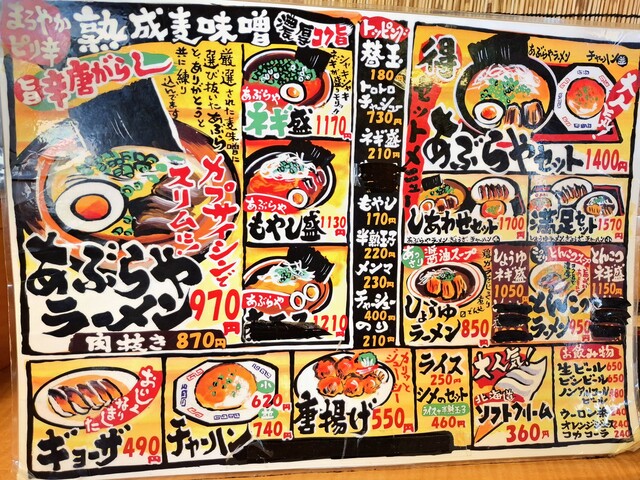 まろやかピリ辛
熟成麦味噌
濃厚コク旨
旨辛唐がらし
厳選された麦味噌に
選び抜いたあぶらと
とうがらしを
共に練り
込んでます
カプサイシンで
スリムに!
あぶらや
ラーメン
970円
肉抜き 870円
シャキシャキ
あぶらや
ネギ盛
1170円
あぶらや
もやし盛
1130円
あぶらや
1210円
トッピング
替玉
180円
トロトロ
チャーシュー
730円
ネギ盛
210円
もやし
170円
半熟玉子
220円
メンマ
230円
チャーシュー
400円
のり
210円
得
セットメニュー
あぶらやラーメン
チャーハン並
大人気!
あぶらやセット 1400円
しあわせセット
1700円
満足セット
1570円
あっさり
醤油スープ
しょうゆ
ラーメン 850円
しょうゆ
ネギ盛
1050円
とんこつスープ
とんこつ
ラーメン 950円
とんこつ
ネギ盛
1150円
おいしくなりました
ギョーザ 490円
チャーハン
小
620円
並
740円
カリッと
ジューシー
唐揚げ
550円
ライス
250円
シメのセット
ライス+半熟玉子
460円
大人気!
北海道
ソフトクリーム
360円
お飲み物
生ビール 650
ビンビール 650
ノンアルコール
ウーロン茶 240
オレンジジュース 240
コカコーラ 240